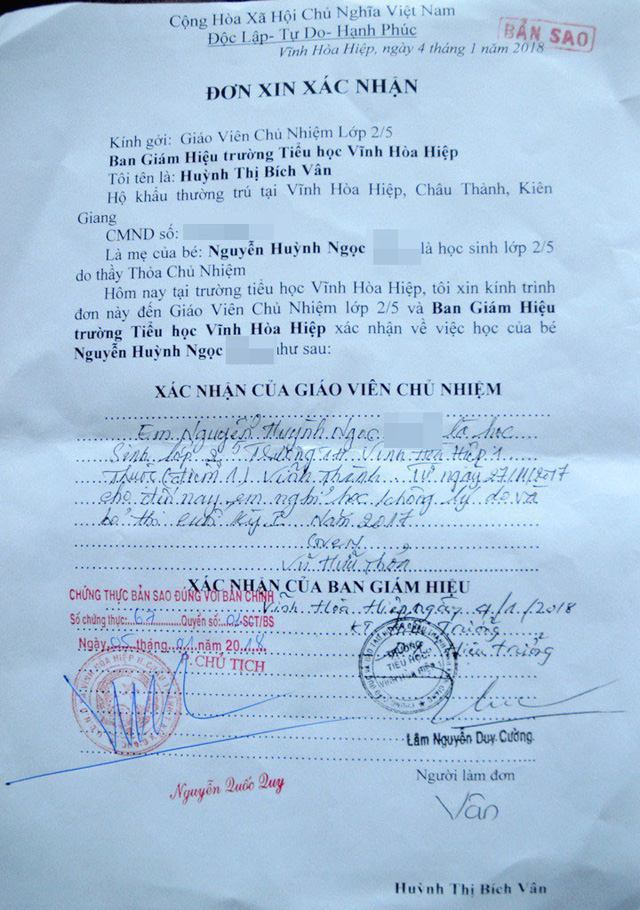 Cộng Hòa Xã Hội Chủ Nghĩa Việt Nam
Độc Lập- Tự Do- Hạnh Phúc
BẢN SAO
Vĩnh Hòa Hiệp, ngày 4 tháng 1 năm 2018
ĐƠN XIN XÁC NHẬN
Kính gởi: Giáo Viên Chủ Nhiệm Lớp 2/5
Ban Giám Hiệu trường Tiểu học Vĩnh Hòa Hiệp
Tôi tên là: Huỳnh Thị Bích Vân
Hộ khẩu thường trú tại Vĩnh Hòa Hiệp, Châu Thành, Kiên
Giang
CMND số:
Là mẹ của bé: Nguyễn Huỳnh Ngọc là học sinh lớp 2/5
do thầy Thỏa Chủ Nhiệm
Hôm nay tại trường tiểu học Vĩnh Hòa Hiệp, tôi xin kính trình
đơn này đến Giáo Viên Chủ Nhiệm lớp 2/5 và Ban Giám Hiệu
trường Tiểu học Vĩnh Hòa Hiệp xác nhận về việc học của bé
Nguyễn Huỳnh Ngọc như sau:
XÁC NHẬN CỦA GIÁO VIÊN CHỦ NHIỆM
Em Nguyễn Huỳnh Ngọc là học
sinh lớp 2/5 Trường TH Vĩnh Hòa Hiệp 1
Thuộc (điểm 1) Vĩnh Thành. Từ ngày 27/11/2017
cho đến nay, em nghỉ học không lý do và
bỏ thi cuối kỳ I năm 2017
Vũ Hữu Thỏa
XÁC NHẬN CỦA BAN GIÁM HIỆU
CHỨNG THỰC BẢN SAO ĐÚNG VỚI BẢN CHÍNH
Số chứng thực: 67 Quyển số: 01-SCT/BS
Ngày 05 tháng 01 năm 2018
Vĩnh Hòa Hiệp, ngày 4/1/2018
KT Hiệu Trưởng
Hiệu Trưởng
P. CHỦ TỊCH
TRƯỜNG
TIỂU HỌC
VĨNH HÒA HIỆP 1
Lâm Nguyễn Duy Cường
Nguyễn Quốc Quy
Người làm đơn
Vân
Huỳnh Thị Bích Vân